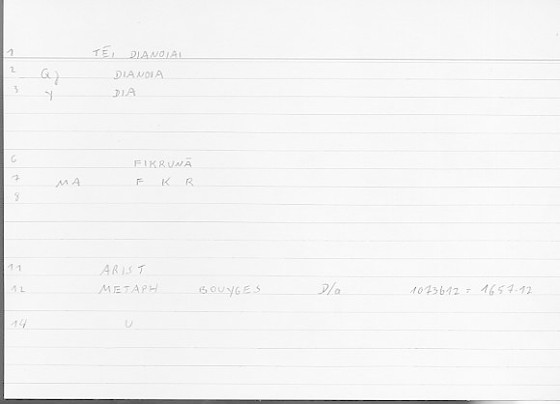 1 TĒI DIANOIAI
2 Gj DIANOIA
3 y DIA
6 FIKRUNĀ
7 MA F K R
8
11 ARIST
12 METAPH BOUYGES D/a 1073b12 = 1657.12
14 U